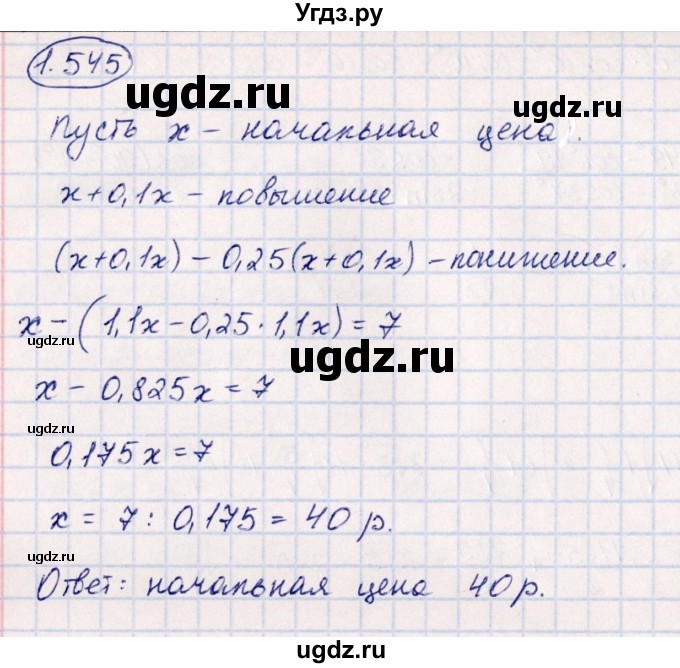 Угдз.ру
1.545
ugdz.ru
Пусть x – начальная цена.
ugdz.ru
x+0,1x – повышение
(x+0,1x) – 0,25(x+0,1x) – понижение.
x – (1,1x – 0,25 · 1,1x) = 7
ugdz.ru
ugdz.ru
x – 0,825x = 7
ugdz.ru
0,175x = 7
x = 7 : 0,175 = 40 р.
ugdz.ru
ugdz.ru
Ответ: начальная цена 40 р.
ugdz.ru
ugdz.ru